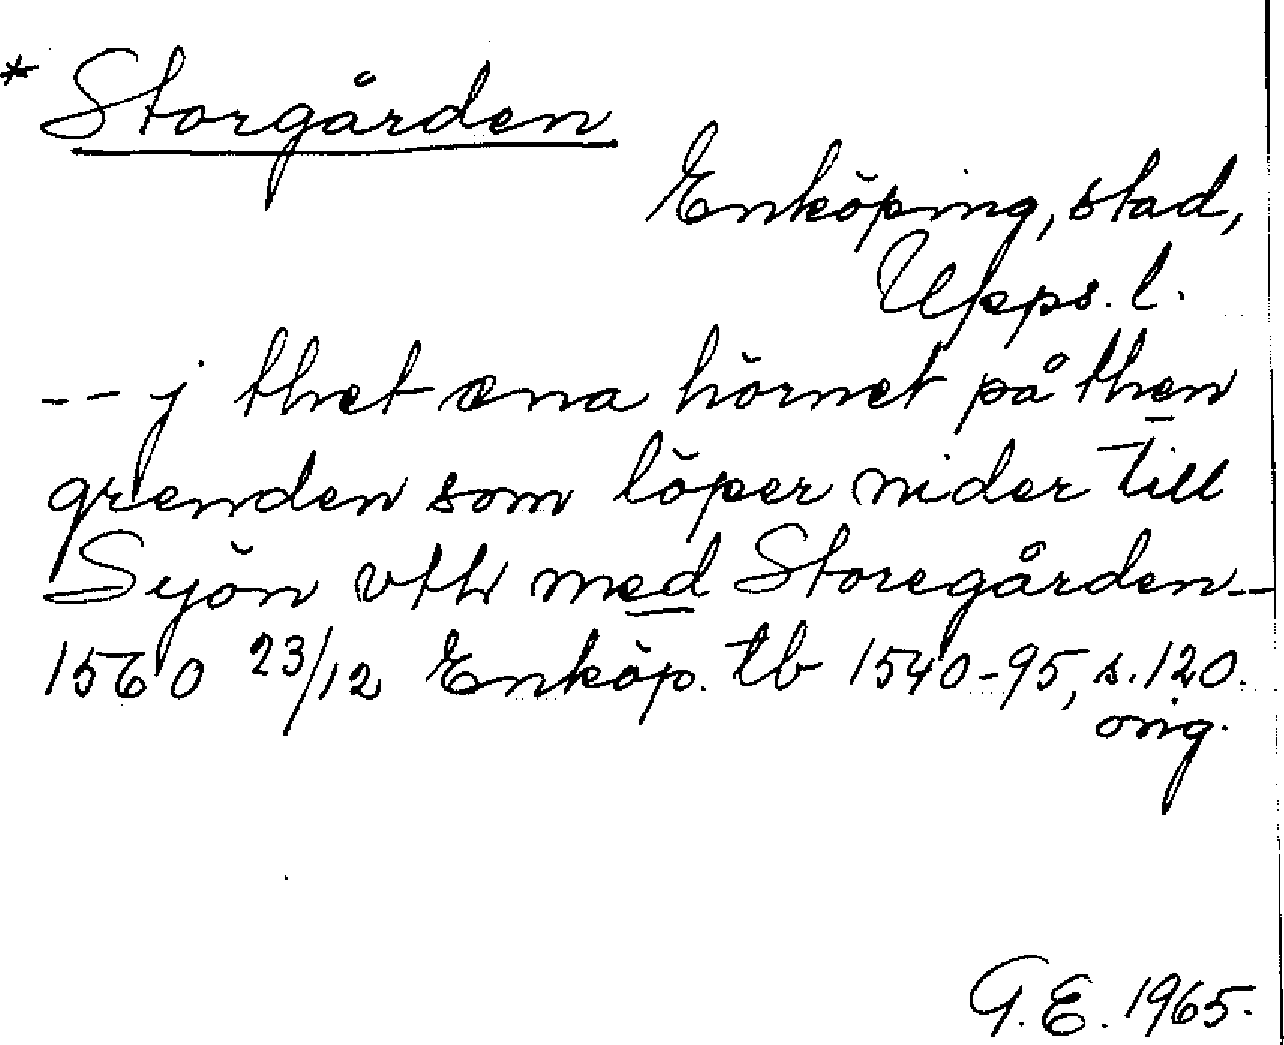 * Storgården
Enköping, stad,
Upps. l.
-- j thet æna hörnet på then
grenden som löper nider till
Syön vth med Storegården --
1560 23/12 Enköp. tb 1540-95, s. 120.
orig.
G. E. 1965.